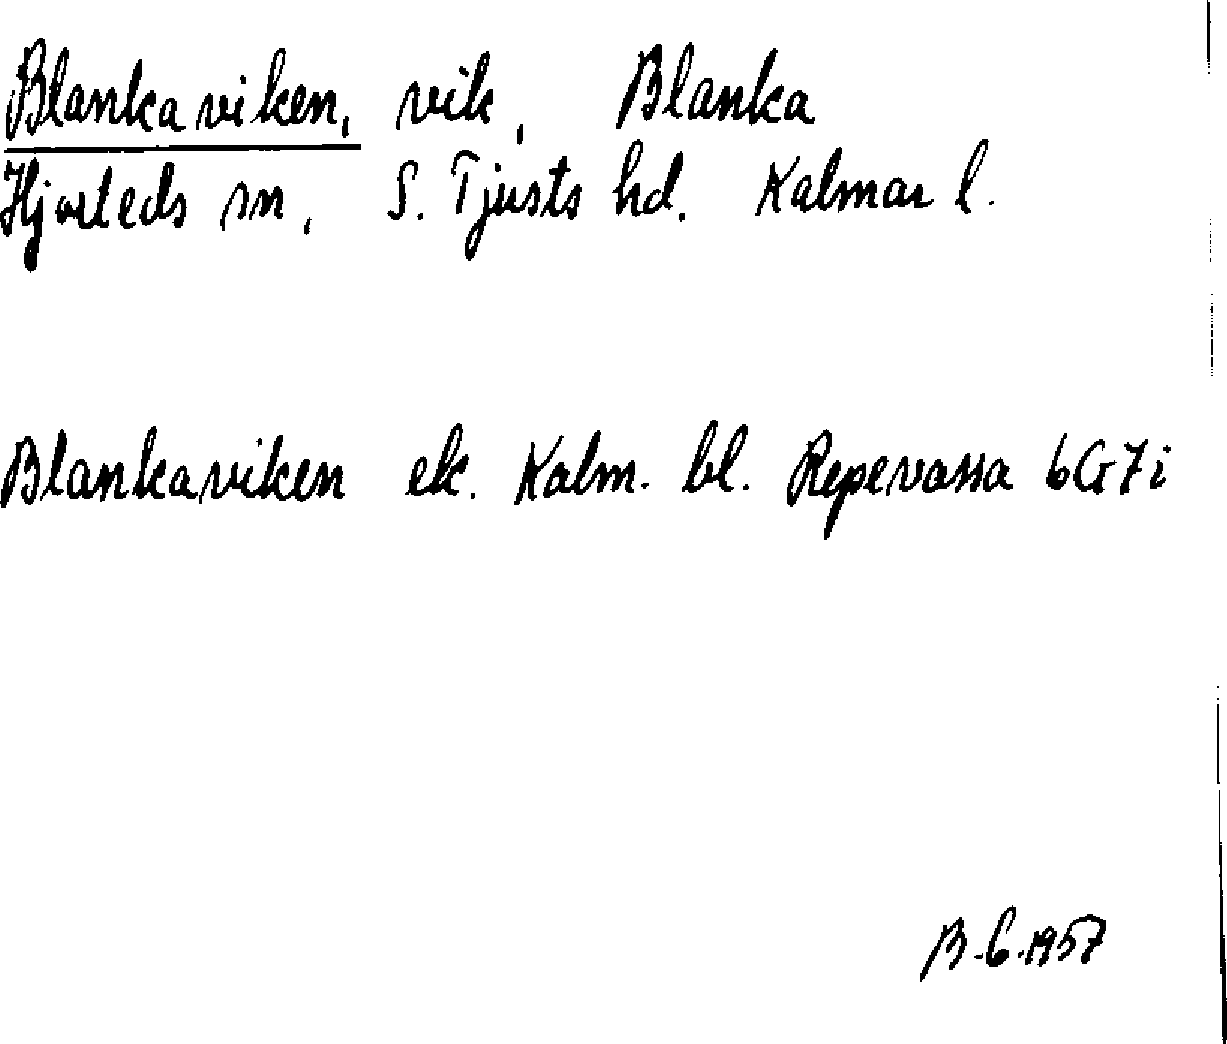 Blankaviken, vik, Blanka
Hjorteds sn, S. Tjusts hd. Kalmar l.
Blankaviken ek. Kalm. bl. Repevassa 6G7i
B.G.1957